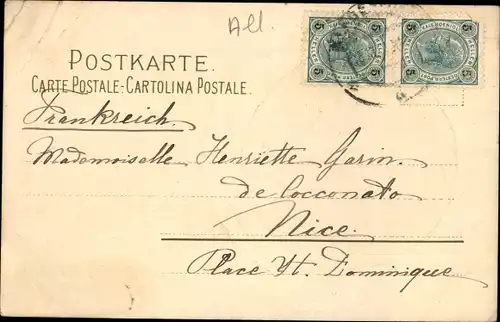 All.
5 5 5 5
POSTKARTE.
CARTE POSTALE-CARTOLINA POSTALE.
Frankreich.
Mademoiselle Henriette Garin.
de Cocconato
Nice.
Place St. Dominique.